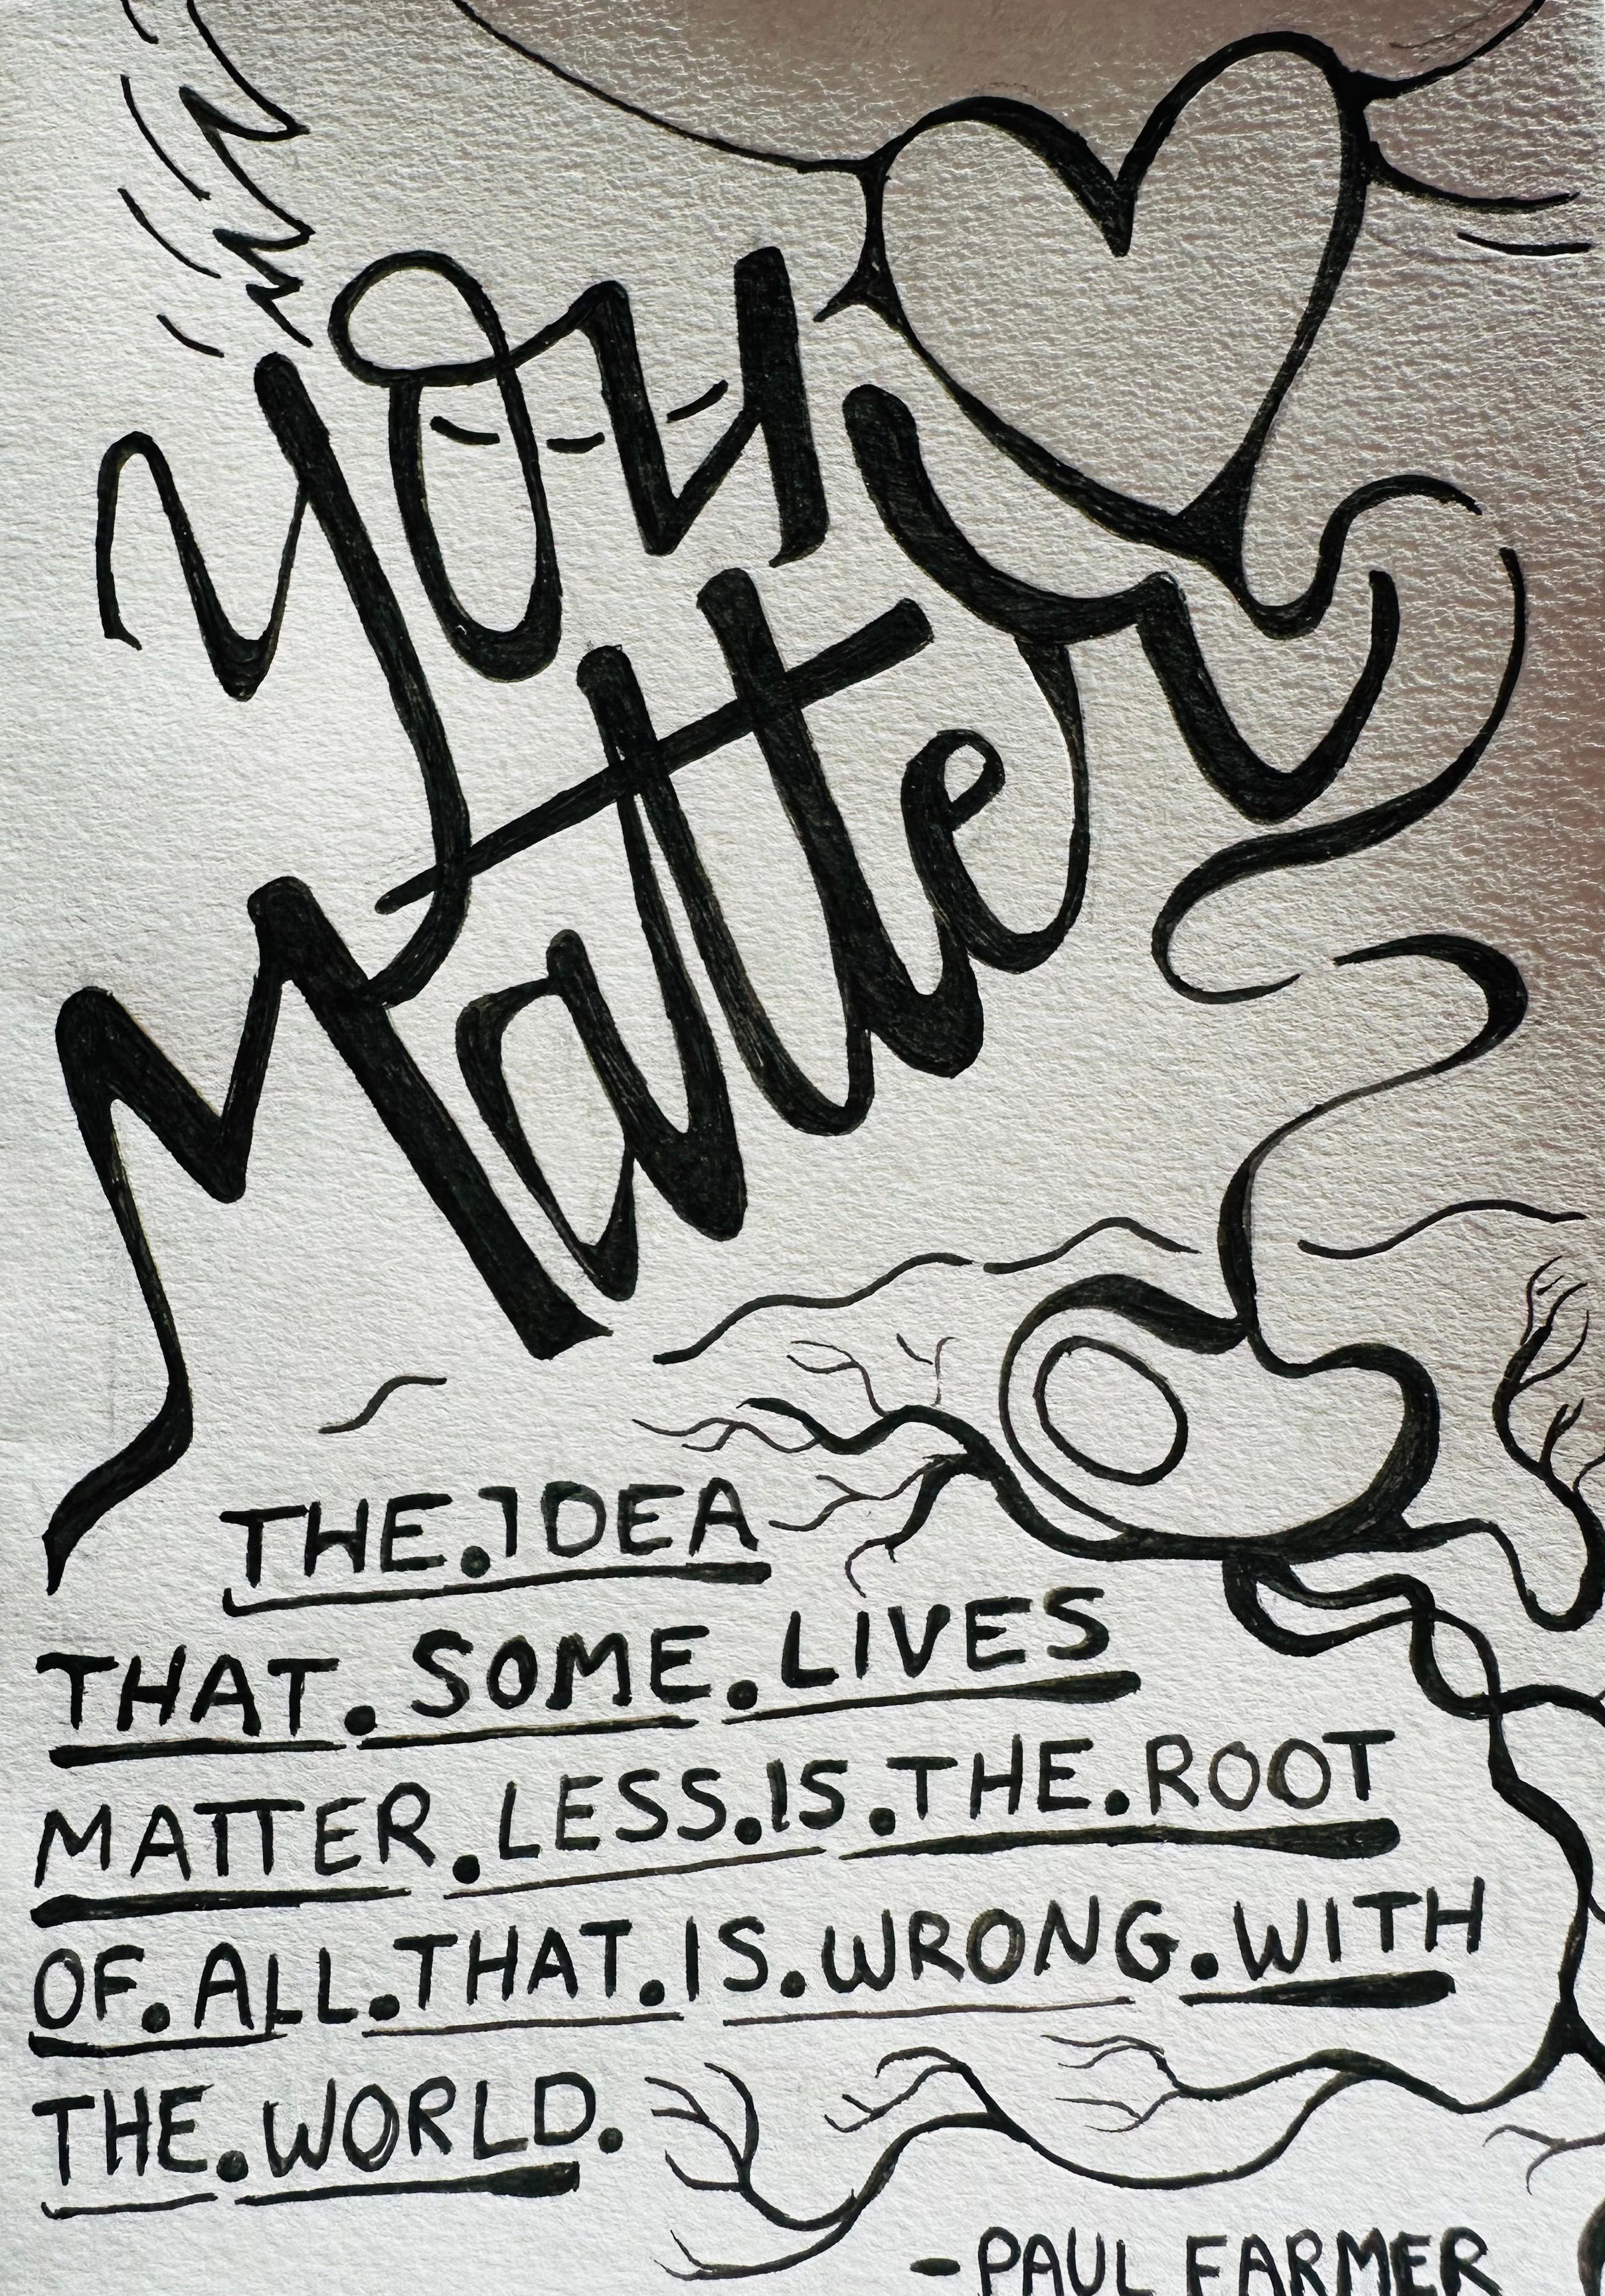 You
Matter
THE.IDEA
THAT.SOME.LIVES
MATTER.LESS.IS.THE.ROOT
OF.ALL.THAT.IS.WRONG.WITH
THE.WORLD.
-PAUL FARMER